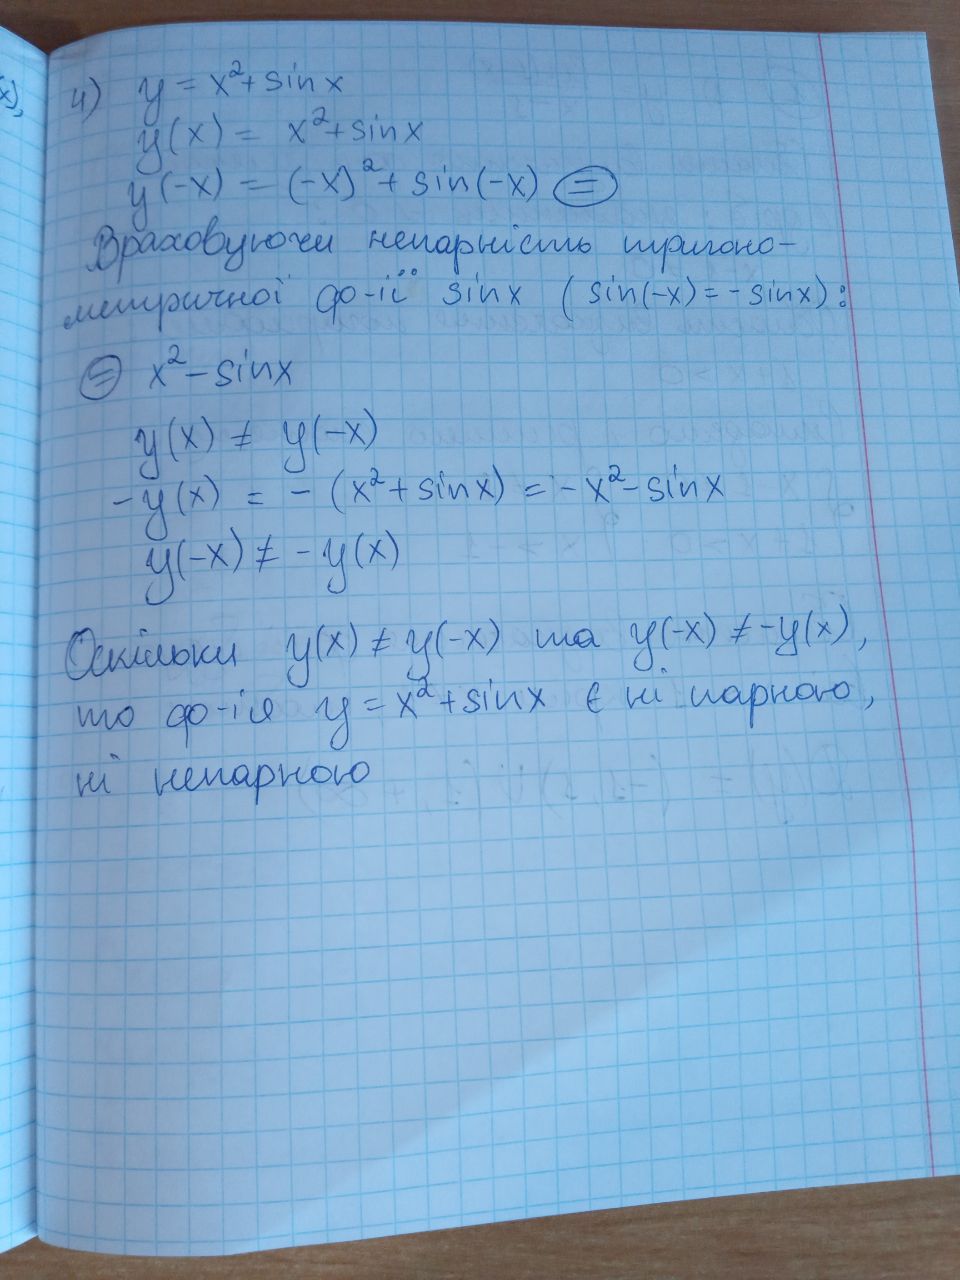 x),
4) y = x²+sinx
y(x) = x²+sinx
y(-x) = (-x)²+ sin(-x) =
Враховуючи непарність тригоно-
метричної ф-ії sinx (sin(-x)=-sinx):
= x²-sinx
y(x) ≠ y(-x)
-y(x) = - (x²+sinx) = -x²-sinx
y(-x) ≠ - y(x)
Оскільки y(x) ≠ y(-x) та y(-x) ≠ -y(x),
то ф-ія y = x²+sinx є ні парною,
ні непарною